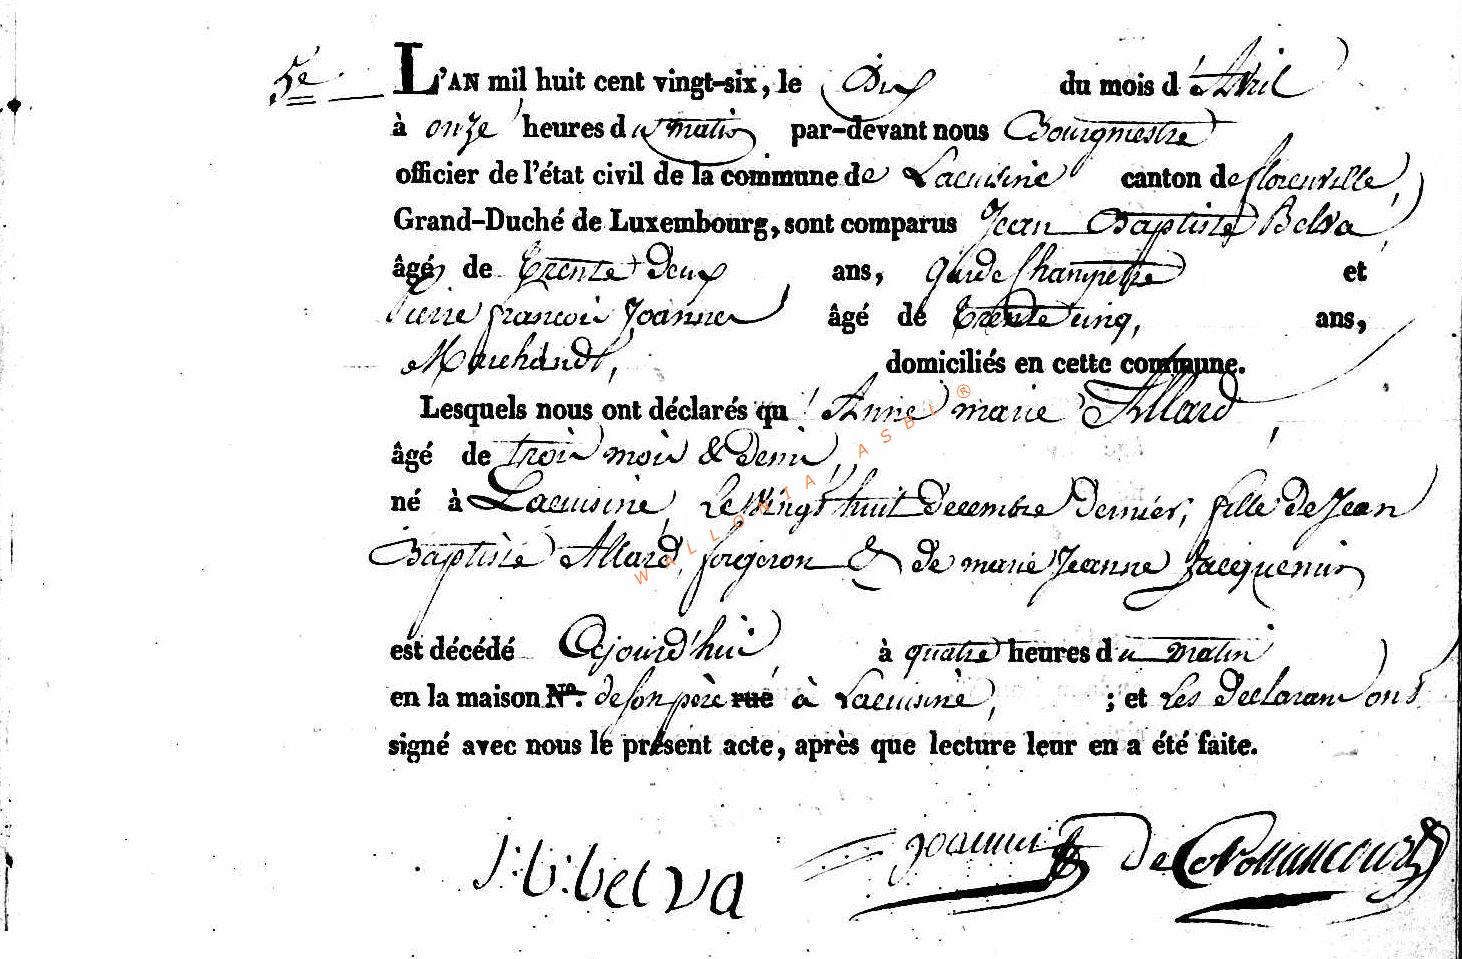 5e L'AN mil huit cent vingt-six, le Dix du mois d'Avril
à onze heures du matin par-devant nous Bourgmestre
officier de l'état civil de la commune de Lacuisine canton de florenville,
Grand-Duché de Luxembourg, sont comparus Jean Baptiste Belva,
âgé de Trente Deux ans, garde Champetre et
Pierre francois Joannes, âgé de Trente cinq, ans,
Marchand, domiciliés en cette commune.
Lesquels nous ont déclarés qu'Anne marie Allard,
âgé de trois mois & Demi,
né à Lacuisine, Le vingt huit Decembre Dernier, fille de Jean
Baptiste Allard, forgeron & de marie Jeanne Jacquemin
est décédé Ajourd'hui, à quatre heures du matin
en la maison No. de son père rue à Lacuisine, ; et Les Declarans ont
signé avec nous le présent acte, après que lecture leur en a été faite.
J:b:belva Joannes De
WALLONIA ASBL ®